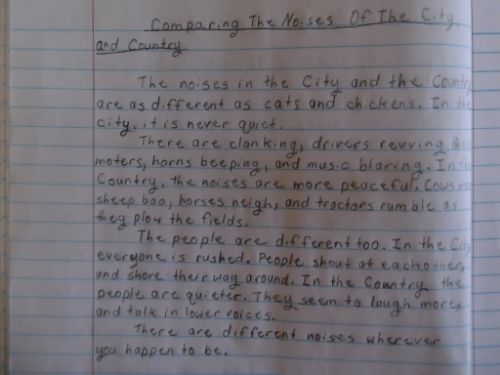 Comparing The Noises Of The City
and Country
The noises in the City and the Country
are as different as cats and chickens. In the
city, it is never quiet.
There are clanking, drivers revving the
moters, horns beeping, and music blaring. In the
Country, the noises are more peaceful. Cows
sheep baa, horses neigh, and tractors rumble as
they plow the fields.
The people are different too. In the City
everyone is rushed. People shout at eachother,
and shore their way around. In the Country the
people are quieter. They seem to laugh more,
and talk in lower voices.
There are different noises wherever
you happen to be.